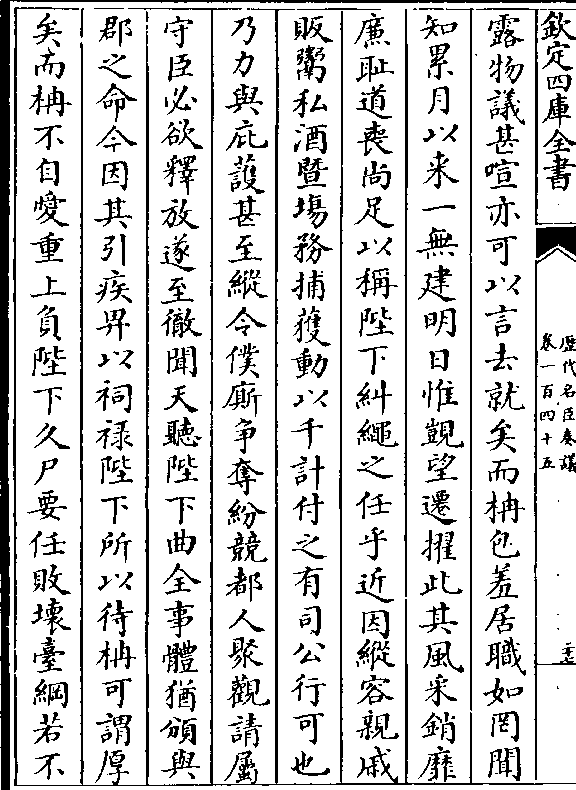 欽定四庫全書
歷代名臣奏議
卷一百四十五
露物議甚喧亦可以言去就矣而枏包羞居職如罔聞
知累月以来一無建明日惟覬望遷擢此其風采銷靡
廉耻道喪尚足以稱陛下糾繩之任乎近因縱容親戚
販鬻私酒暨場務捕獲動以千計付之有司公行可也
乃力與庇護甚至縱令僕廝争奪紛競都人聚觀請屬
守臣必欲釋放遂至徹聞天聽陛下曲全事體猶頒與
郡之命今因其引疾畀以祠禄陛下所以待枏可謂厚
矣而枏不自愛重上負陛下久尸要任敗壞臺綱若不